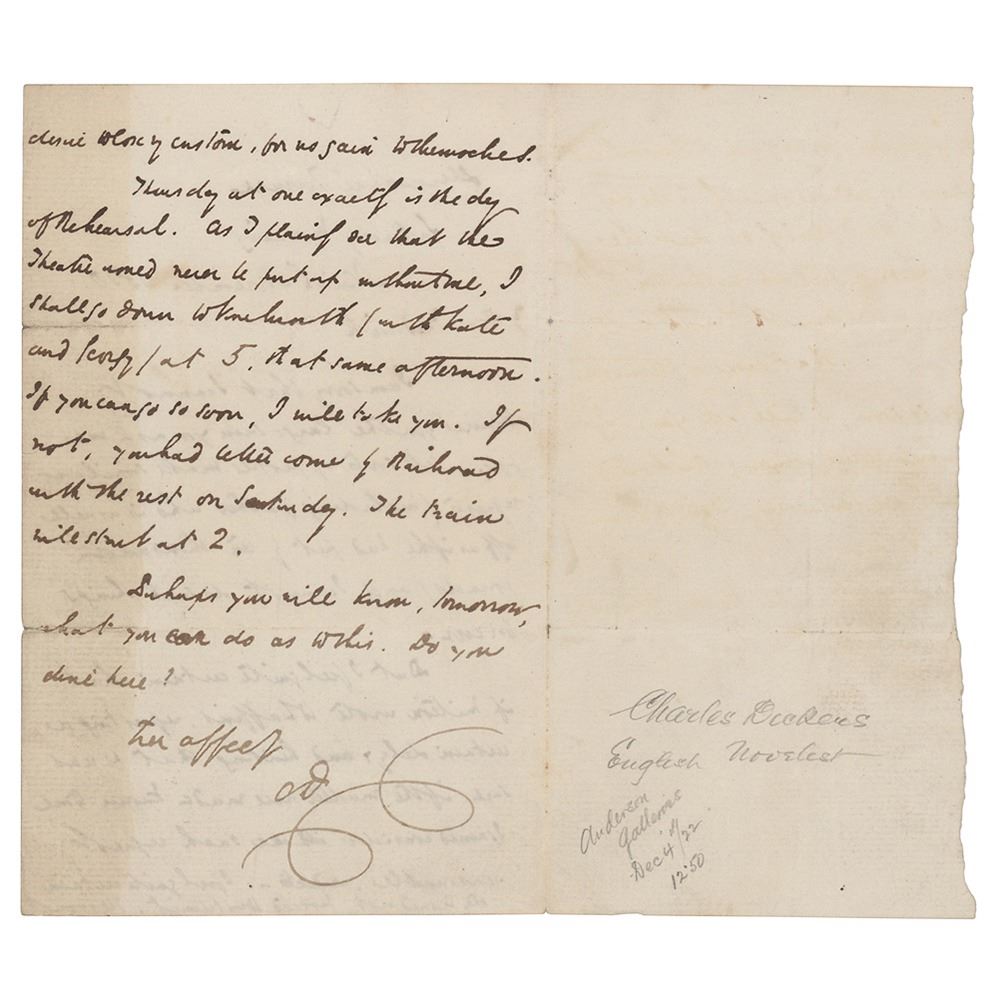 desire to lose y custom, for no gain to themselves.
Thursday at one exactly is the day
of Rehearsal. As I plainly see that the
Theatre would never be put up without me, I
shall go down to Knebworth (with Kate
and Georgy) at 5, that same afternoon.
If you can go so soon, I will take you. If
not, you had better come by Railroad
with the rest on Saturday. The train
will start at 2.
Perhaps you will know, tomorrow,
what you can do as to this. Do you
dine here?
Ever affecy
CD
Charles Dickens
English Novelist
Anderson
Galleries
Dec 4/22
12.50